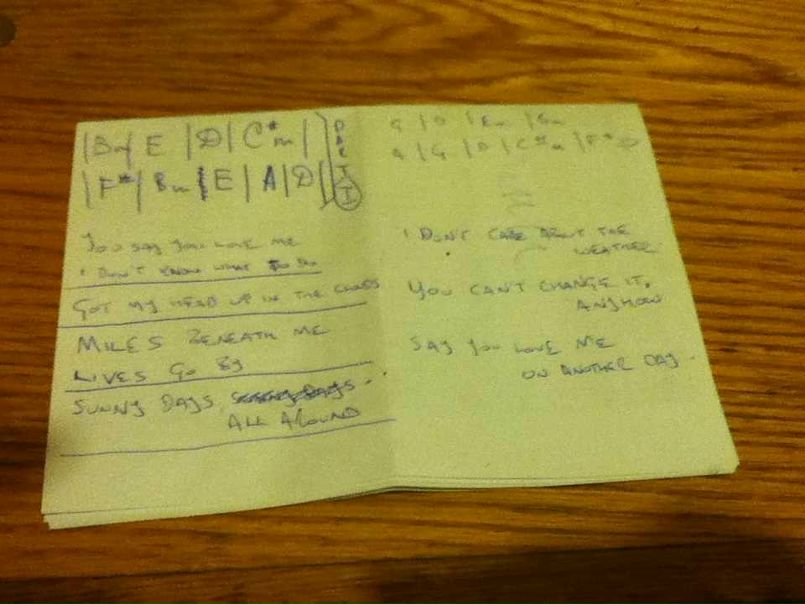 |Bm| E |D| C#m |
|F#| Bm |E| A |D|
PART I
You say you love me
I don't know what to do
GOT MY HEAD UP IN THE CLOUDS
MILES BENEATH ME
LIVES GO BY
SUNNY DAYS
ALL AROUND
G | D | Em |
| G | D | C#m | F#
I DON'T CARE ABOUT THE
WEATHER
YOU CAN'T CHANGE IT,
ANYHOW
SAY YOU LOVE ME
ON ANOTHER DAY